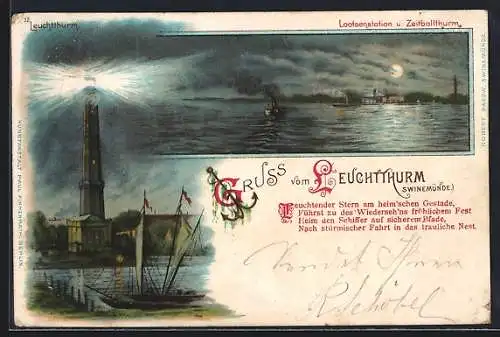 12
Leuchtthurm.
Lootsenstation u. Zeitballthurm.
KUNSTANSTALT PAUL FINKENRATH, BERLIN.
ROBERT RASOW, SWINEMÜNDE.
GRUSS vom LEUCHTTHURM
(SWINEMÜNDE.)
Leuchtender Stern am heim'schen Gestade,
Führst zu des Wiederseh'ns fröhlichem Fest
Heim den Schiffer auf sicherem Pfade,
Nach stürmischer Fahrt in das trauliche Nest.
Sendet Ihnen
R. Schöbel